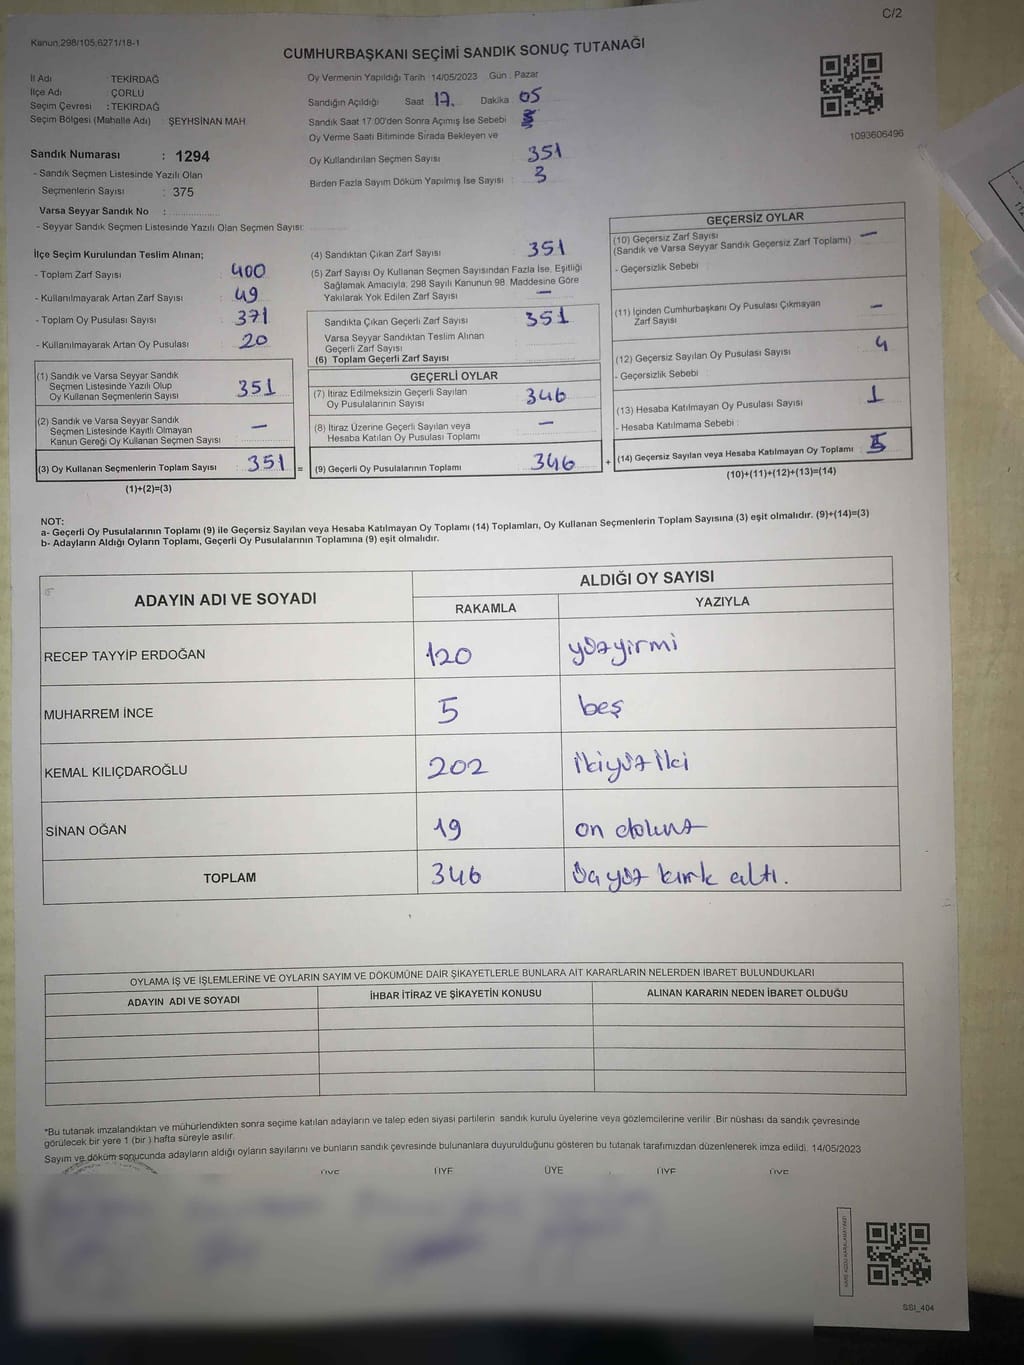 C/2
Kanun:298/105,6271/18-1
CUMHURBAŞKANI SEÇİMİ SANDIK SONUÇ TUTANAĞI
İl Adı : TEKİRDAĞ
İlçe Adı : ÇORLU
Seçim Çevresi : TEKİRDAĞ
Seçim Bölgesi (Mahalle Adı) : ŞEYHSİNAN MAH
Oy Vermenin Yapıldığı Tarih : 14/05/2023 Gün : Pazar
Sandığın Açıldığı Saat 17. Dakika : 05
Sandık Saat 17:00'den Sonra Açımış İse Sebebi
Oy Verme Saati Bitiminde Sırada Bekleyen ve
Oy Kullandırılan Seçmen Sayısı : 351
Birden Fazla Sayım Döküm Yapılmış İse Sayısı : 3
1093606496
Sandık Numarası : 1294
- Sandık Seçmen Listesinde Yazılı Olan
Seçmenlerin Sayısı : 375
Varsa Seyyar Sandık No :
- Seyyar Sandık Seçmen Listesinde Yazılı Olan Seçmen Sayısı:
İlçe Seçim Kurulundan Teslim Alınan;
- Toplam Zarf Sayısı : 400
- Kullanılmayarak Artan Zarf Sayısı : 49
- Toplam Oy Pusulası Sayısı : 371
- Kullanılmayarak Artan Oy Pusulası : 20
(1) Sandık ve Varsa Seyyar Sandık
Seçmen Listesinde Yazılı Olup
Oy Kullanan Seçmenlerin Sayısı : 351
(2) Sandık ve Varsa Seyyar Sandık
Seçmen Listesinde Kayıtlı Olmayan
Kanun Gereği Oy Kullanan Seçmen Sayısı : —
(3) Oy Kullanan Seçmenlerin Toplam Sayısı : 351
(1)+(2)=(3)
(4) Sandıktan Çıkan Zarf Sayısı : 351
(5) Zarf Sayısı Oy Kullanan Seçmen Sayısından Fazla İse, Eşitliği
Sağlamak Amacıyla; 298 Sayılı Kanunun 98. Maddesine Göre
Yakılarak Yok Edilen Zarf Sayısı : —
Sandıkta Çıkan Geçerli Zarf Sayısı : 351
Varsa Seyyar Sandıktan Teslim Alınan
Geçerli Zarf Sayısı
(6) Toplam Geçerli Zarf Sayısı
GEÇERLİ OYLAR
(7) İtiraz Edilmeksizin Geçerli Sayılan
Oy Pusulalarının Sayısı : 346
(8) İtiraz Üzerine Geçerli Sayılan veya
Hesaba Katılan Oy Pusulası Toplamı : —
= (9) Geçerli Oy Pusulalarının Toplamı : 346
GEÇERSİZ OYLAR
(10) Geçersiz Zarf Sayısı : —
(Sandık ve Varsa Seyyar Sandık Geçersiz Zarf Toplamı)
- Geçersizlik Sebebi :
(11) İçinden Cumhurbaşkanı Oy Pusulası Çıkmayan
Zarf Sayısı : —
(12) Geçersiz Sayılan Oy Pusulası Sayısı : 4
- Geçersizlik Sebebi :
(13) Hesaba Katılmayan Oy Pusulası Sayısı : 1
- Hesaba Katılmama Sebebi :
+ (14) Geçersiz Sayılan veya Hesaba Katılmayan Oy Toplamı : 5
(10)+(11)+(12)+(13)=(14)
NOT:
a- Geçerli Oy Pusulalarının Toplamı (9) ile Geçersiz Sayılan veya Hesaba Katılmayan Oy Toplamı (14) Toplamları, Oy Kullanan Seçmenlerin Toplam Sayısına (3) eşit olmalıdır. (9)+(14)=(3)
b- Adayların Aldığı Oyların Toplamı, Geçerli Oy Pusulalarının Toplamına (9) eşit olmalıdır.
ADAYIN ADI VE SOYADI ALDIĞI OY SAYISI
RAKAMLA YAZIYLA
RECEP TAYYİP ERDOĞAN 120 yüzyirmi
MUHARREM İNCE 5 beş
KEMAL KILIÇDAROĞLU 202 ikiyüz iki
SİNAN OĞAN 19 on dokuz
TOPLAM 346 üç yüz kırk altı.
OYLAMA İŞ VE İŞLEMLERİNE VE OYLARIN SAYIM VE DÖKÜMÜNE DAİR ŞİKAYETLERLE BUNLARA AİT KARARLARIN NELERDEN İBARET BULUNDUKLARI
ADAYIN ADI VE SOYADI İHBAR İTİRAZ VE ŞİKAYETİN KONUSU ALINAN KARARIN NEDEN İBARET OLDUĞU
*Bu tutanak imzalandıktan ve mühürlendikten sonra seçime katılan adayların ve talep eden siyasi partilerin sandık kurulu üyelerine veya gözlemcilerine verilir. Bir nüshası da sandık çevresinde
görülecek bir yere 1 (bir ) hafta süreyle asılır.
Sayım ve döküm sonucunda adayların aldığı oyların sayılarını ve bunların sandık çevresinde bulunanlara duyurulduğunu gösteren bu tutanak tarafımızdan düzenlenerek imza edildi. 14/05/2023
ÜYE ÜYE ÜYE ÜYE ÜYE
SSI_404